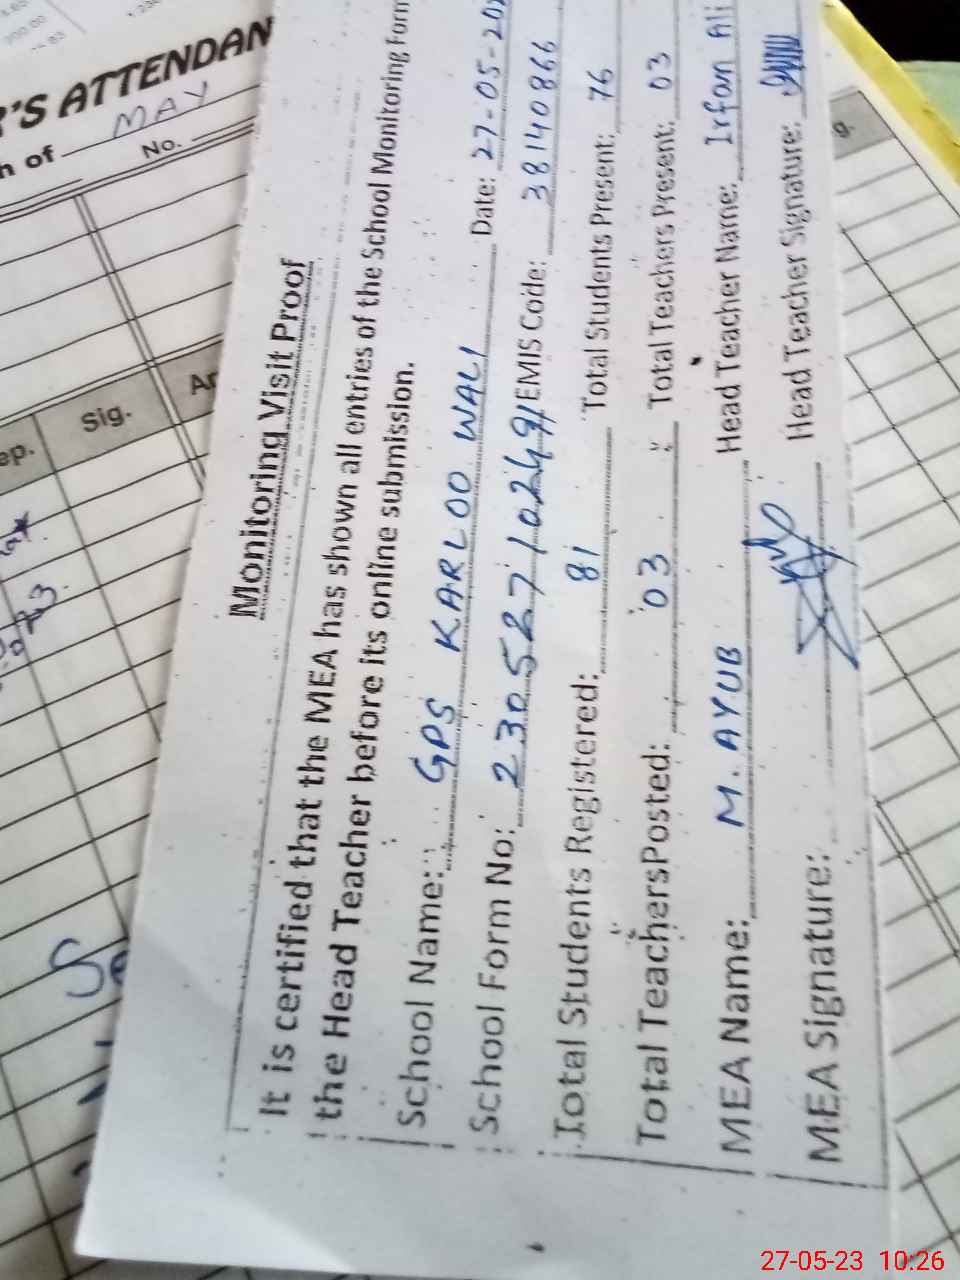 R'S ATTENDAN
h of MAY
No.
ep. Sig. Ar
g.
Monitoring Visit Proof
It is certified that the MEA has shown all entries of the School Monitoring Form
the Head Teacher before its online submission.
School Name: GPS KARLOO WALI Date: 27-05-202
School Form No: 230527102491 EMIS Code: 38140866
Total Students Registered: 81 Total Students Present: 76
Total TeachersPosted: 03 Total Teachers Present: 03
MEA Name: M. AYUB Head Teacher Name: Irfan Ali
MEA Signature: Head Teacher Signature:
27-05-23 10:26